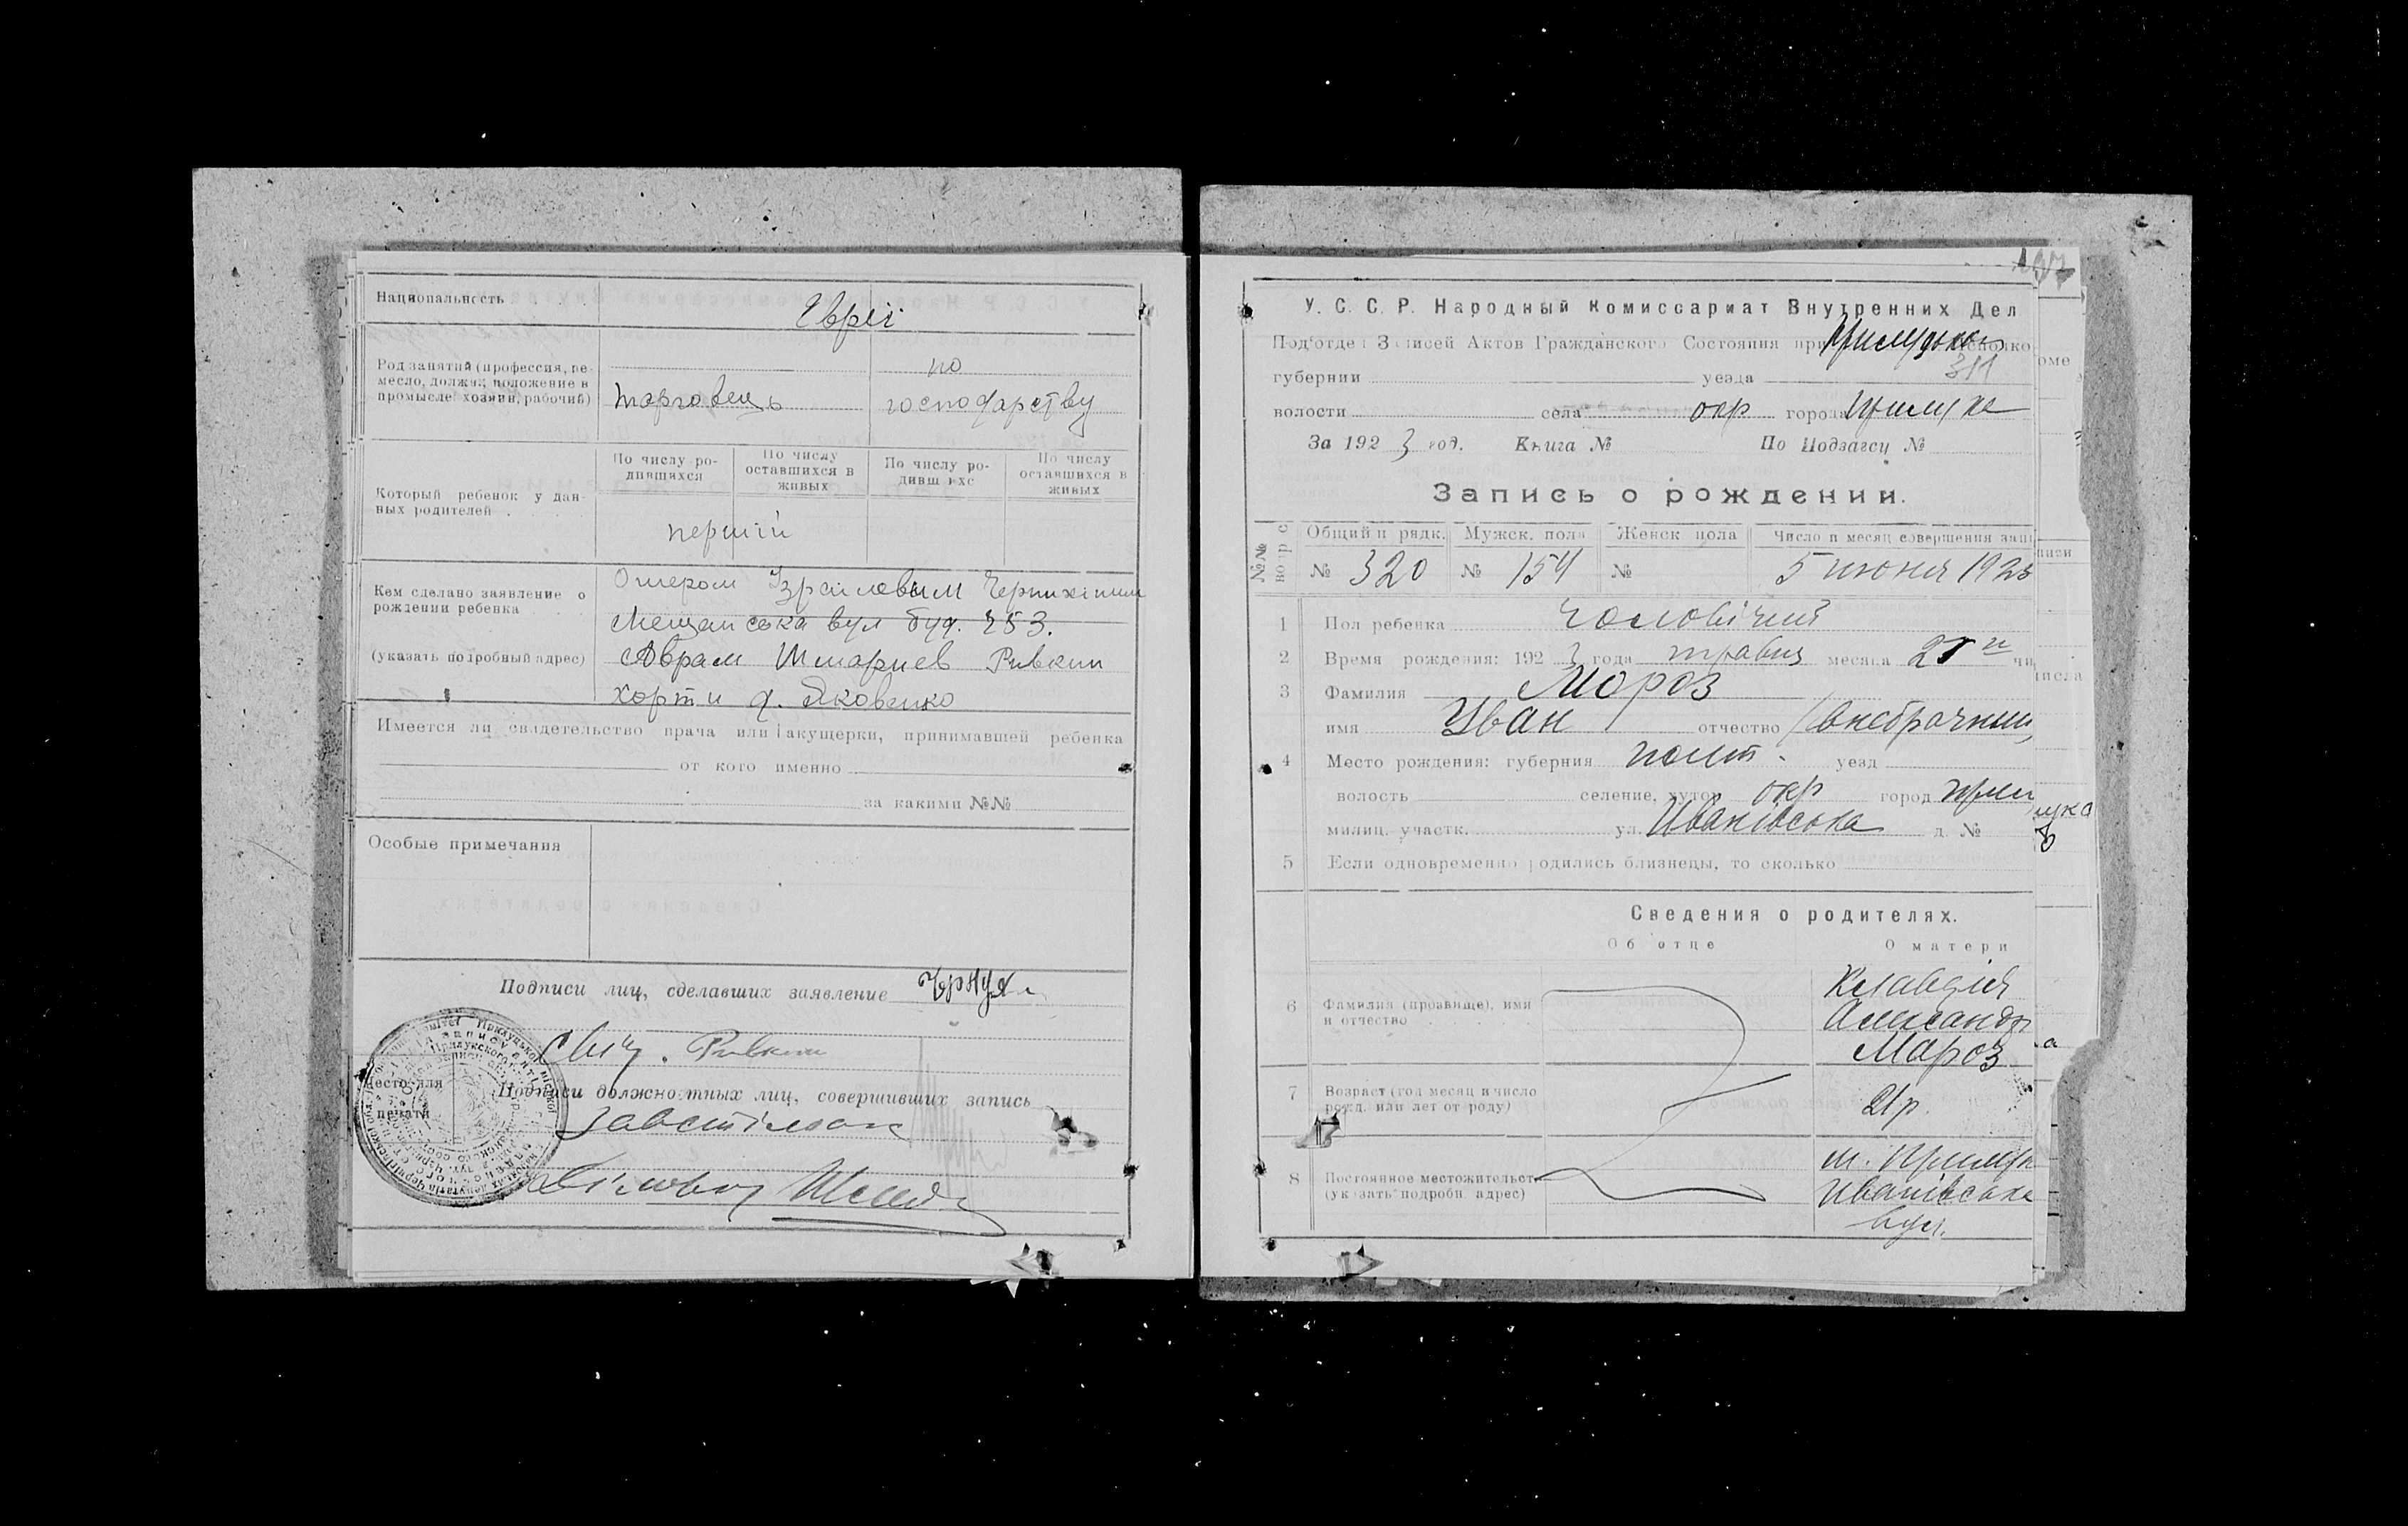 Национальность
Євреі
Род занятий (профессия, ре-
месло, должн., положение в
промысле: хозяин, рабочий)
торговець
по
господарству
Который ребенок у дан-
ных родителей
По числу ро-
дившихся
По числу
оставшихся в
живых
По числу ро-
дивш ихс
По числу
оставшихся в
живых
перший
Кем сделано заявление о
рождении ребенка
(указать подробный адрес)
Мещанська вул буд. 253.
Аврам Шмариев Ривкин
д. Яковенко
Имеется ли свидетельство врача или акушерки, принимавшей ребенка
от кого именно
за какими №№
Особые примечания
Подписи лиц, сделавших заявление
Ривкин
Место для
печати
Подписи должностных лиц, совершивших запись
У. С. С. Р. Народный Комиссариат Внутренних Дел
Подотдел Записей Актов Гражданского Состояния при
губернии уезда
311
волости села окр города Прилуке
За 1923 год. Книга № По Подзагсу №
Запись о рождении.
№№
Общий п рядк. Мужск. пола Женск пола Число и месяц совершения зап
№ 320 № 154 № 5 июня 1923
1 Пол ребенка чоловічий
2 Время рождения: 1923 года травня месяца
3 Фамилия Мороз
имя Иван отчество (внебрачный)
4 Место рождения: губерния полт. уезд
волость селение, хутор окр город Прилука
милиц. участк. ул. Иванівська д. №
5 Если одновременно родились близнецы, то сколько
Сведения о родителях.
Об отце О матери
6 Фамилия (прозвище), имя
и отчество
Клавдія
Александр
Мароз
7 Возраст (год месяц и число
рожд. или лет от роду)
21 р.
8 Постоянное местожительст
(указать подробн. адрес)
м. Прилук
Иванівська
вул.